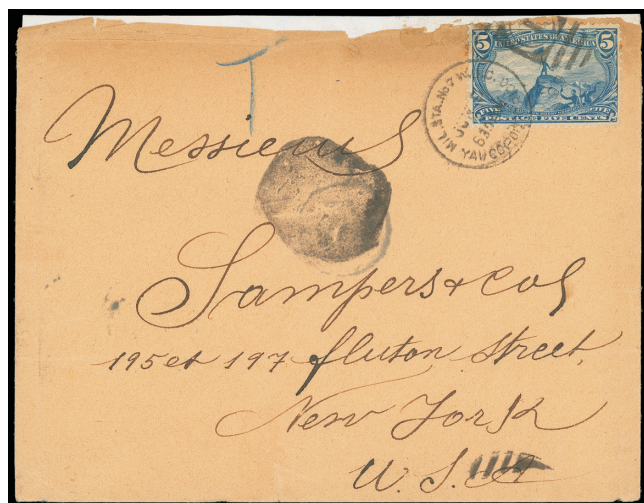 5 UNITED STATES OF AMERICA 5
FIVE FIVE
POSTAGE FIVE CENTS
MIL. STA. No 7
T
Messieurs
Sampers & Co
195 et 197 fluton street,
New York
U. S. A